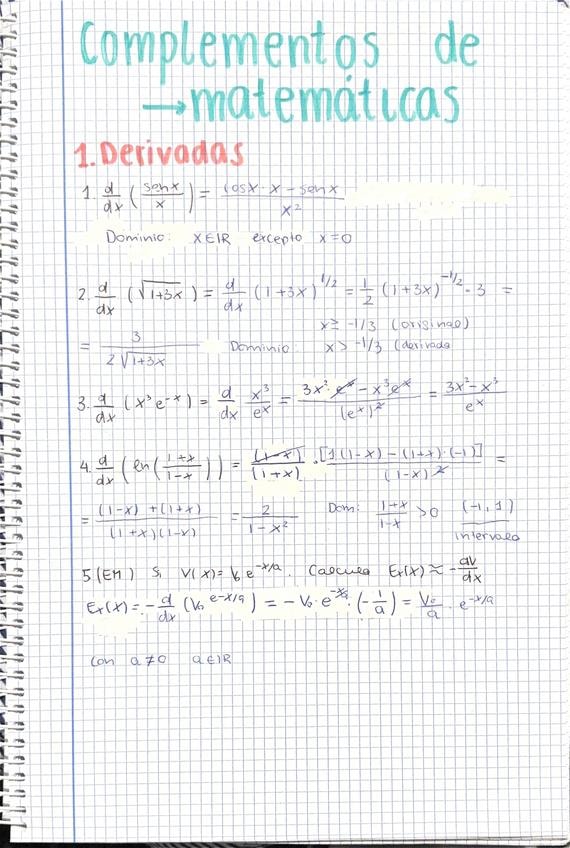 Complementos de
→ matemáticas
1. Derivadas
1. d/dx (sen x / x) = (cosx · x − sen x) / x²
Dominio: x∈IR excepto x=0
2. d/dx (√(1+3x)) = d/dx (1+3x)^(1/2) = 1/2 (1+3x)^(-1/2) · 3 =
x ≥ -1/3 (original)
= 3 / (2√(1+3x)) Dominio: x > -1/3 (derivada
3. d/dx (x³e^(-x)) = d/dx x³/e^x = (3x² · e^x − x³e^x) / (e^x)² = (3x² − x³) / e^x
4. d/dx (ln((1+x)/(1-x))) = (1-x)/(1+x) · [1(1-x) − (1+x)·(-1)] / (1-x)² =
= ((1-x) + (1+x)) / ((1+x)(1-x)) = 2 / (1-x²) Dom: (1+x)/(1-x) > 0 (-1,1)
intervalo
5. (EM) Si V(x) = V₀ e^(-x/a). Calcula Ex(x) ≈ -dV/dx
Ex(x) = -d/dx (V₀ e^(-x/a)) = -V₀ · e^(-x/a) · (-1/a) = V₀/a · e^(-x/a)
con a≠0 a∈IR